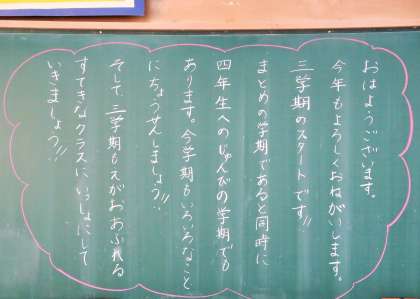 おはようございます。
今年もよろしくおねがいします。
三学期のスタートです!!
まとめの学期であると同時に
四年生へのじゅんびの学期でも
あります。今学期もいろいろなこと
にちょうせんしましょう!!
そして三学期もえがおあふれる
すてきなクラスに、いっしょにして
いきましょう!!